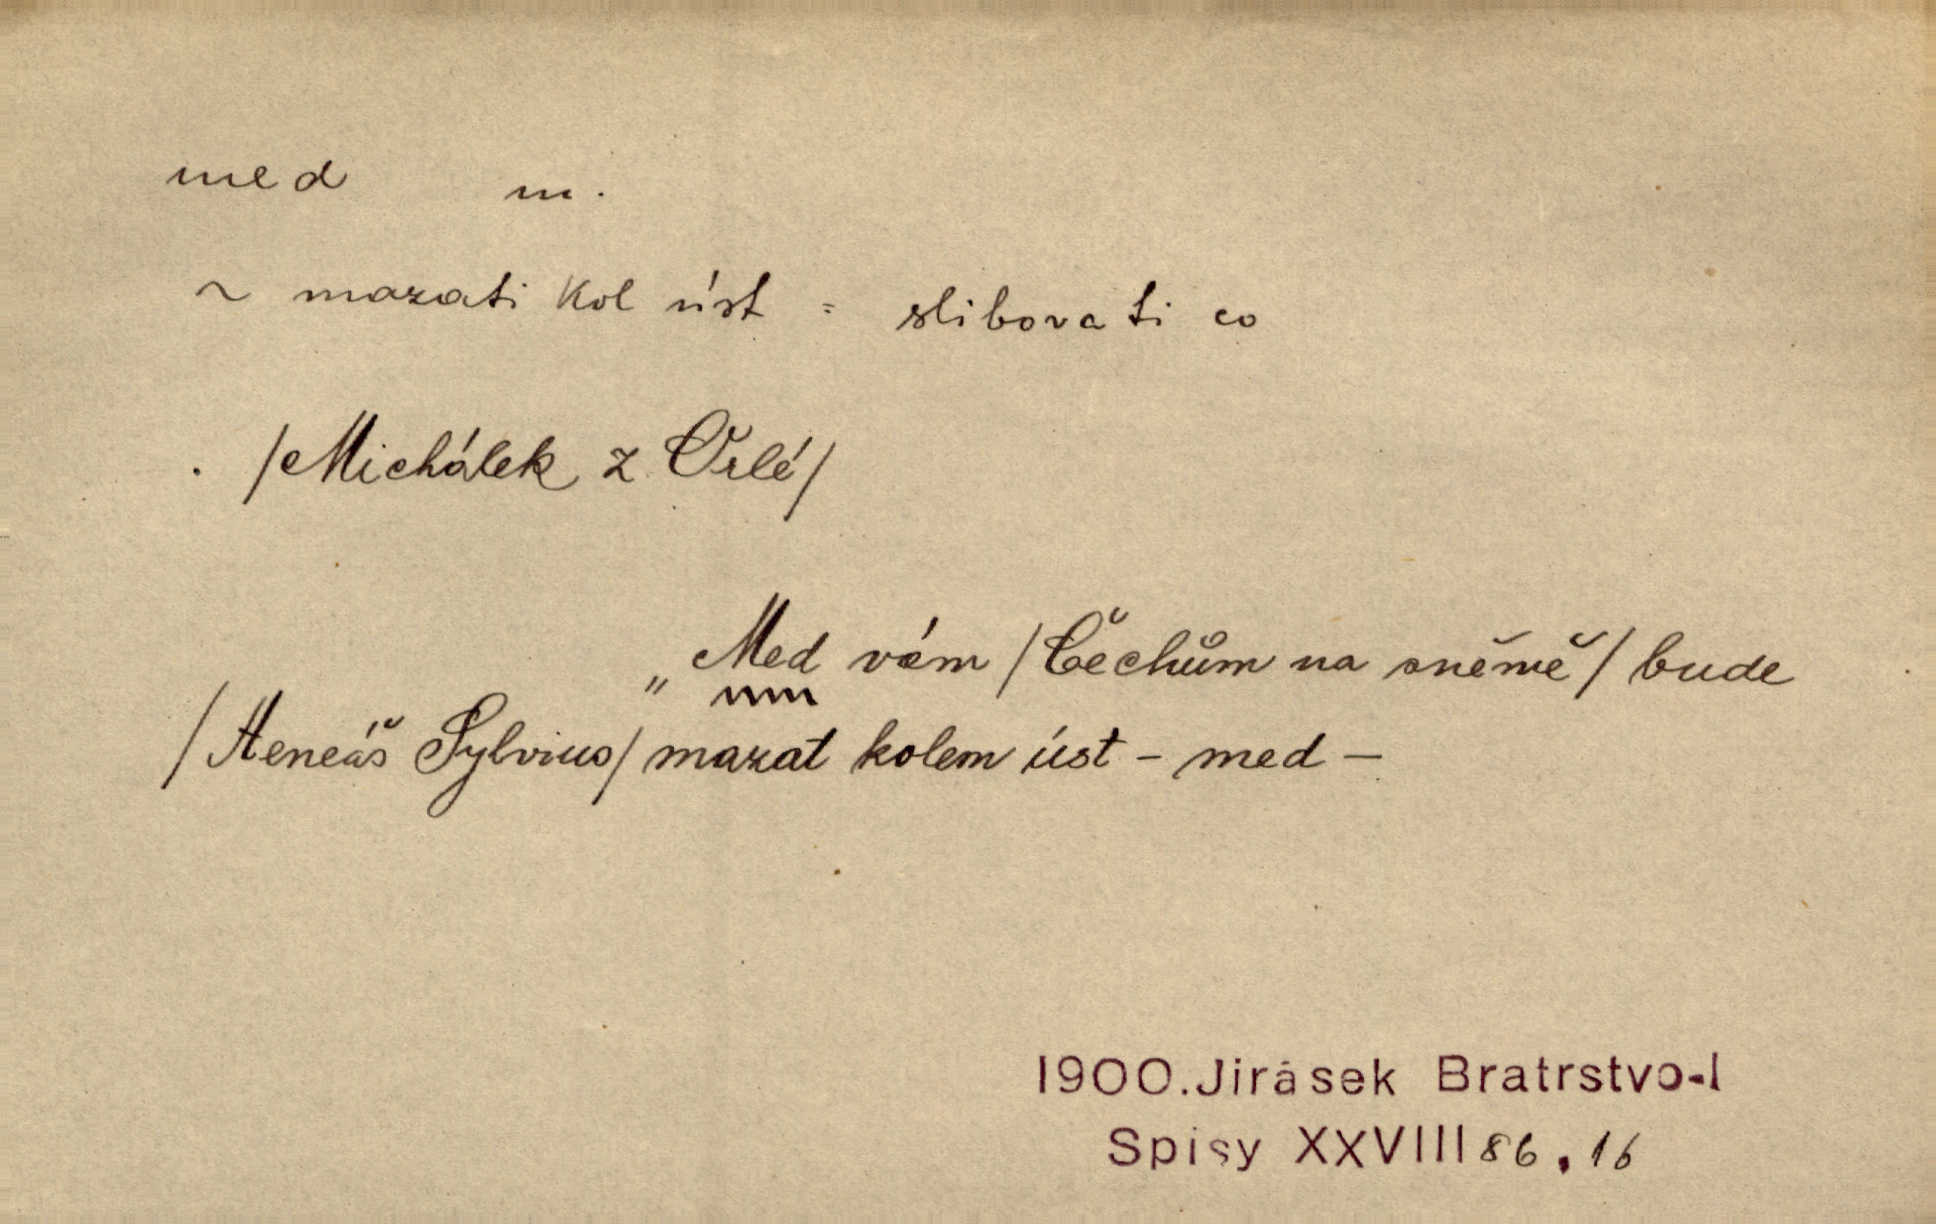 med m.
~ mazati kol úst = slibovati co
. /Michálek z Orlé/
„Med vám /Čechům na sněmě/ bude
/Aeneáš Sylvius/ mazat kolem úst - med -
1900. Jirásek Bratrstvo-I
Spisy XXVIII 86, 16